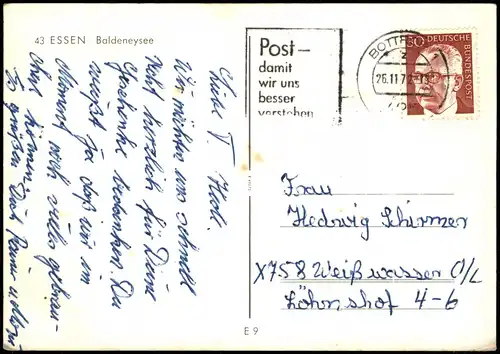 43 ESSEN Baldeneysee
Post–
damit
wir uns
besser
verstehen
BOTTR
26.11.7
50
DEUTSCHE
BUNDESPOST
Liebe T. Hedi.
Wir möchten uns schnell
recht herzlich für Deine
Geschenke bedanken. Du
weißt ja daß wir im
Moment noch alles gebrau-
chen können.
Es grüßen Dich
Frau
Hedwig Schirmer
X758 Weißwasser O/L
Löhnshof 4-6
E 9